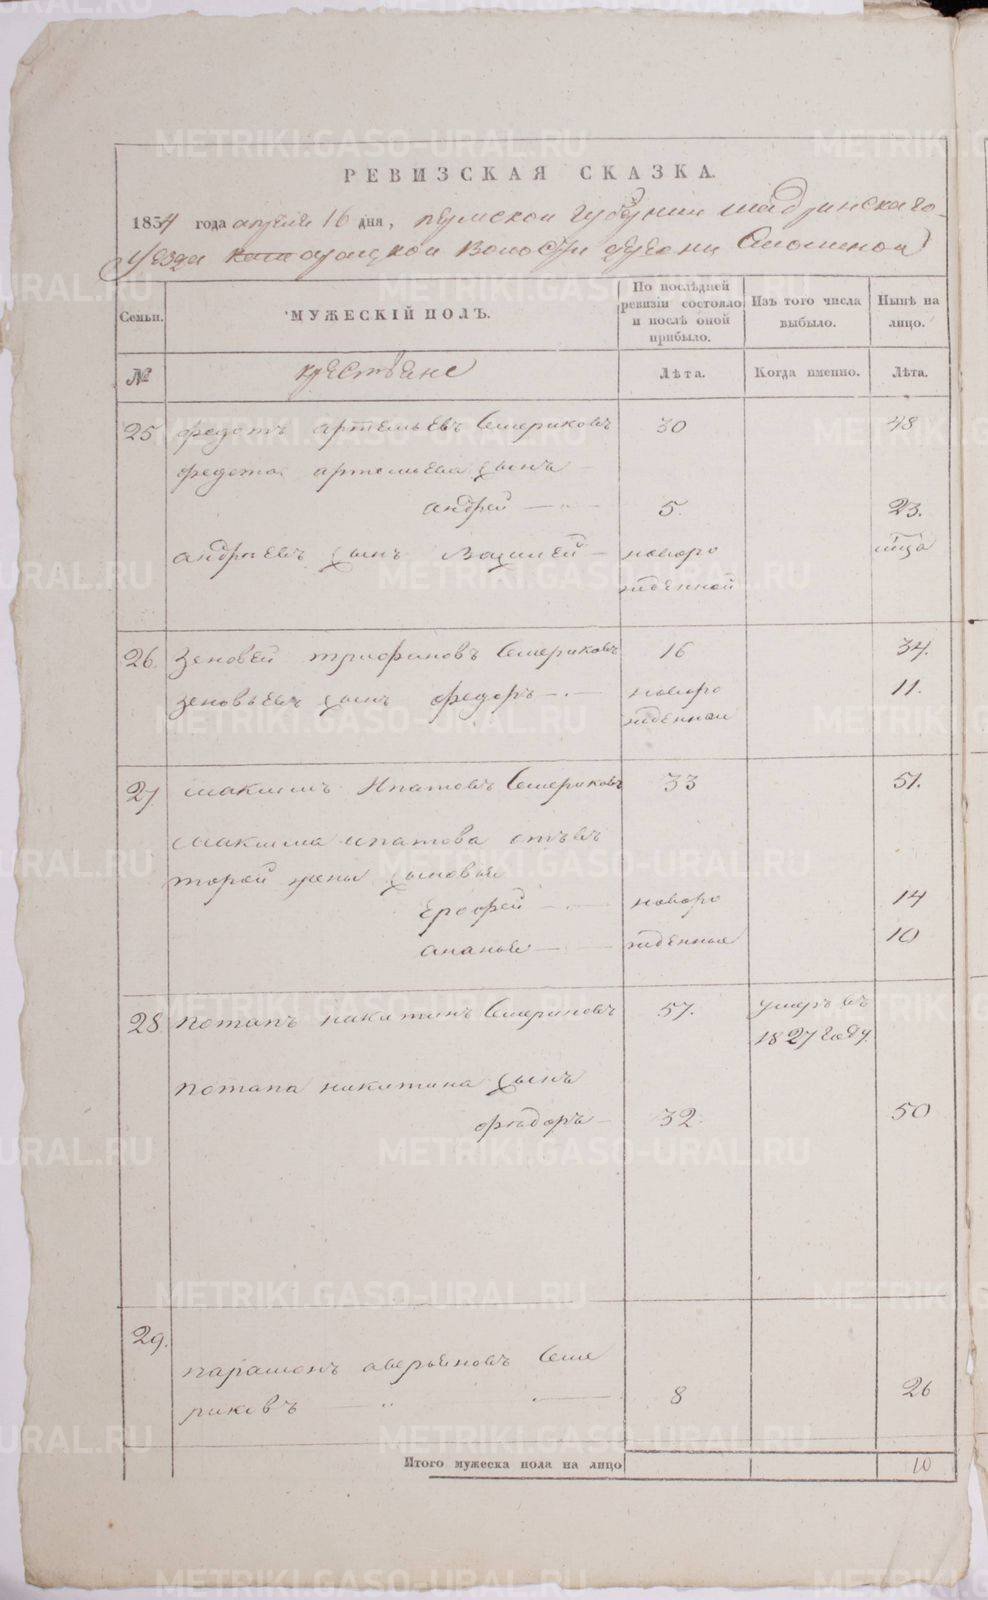 РЕВИЗСКАЯ СКАЗКА.
1834 года апреля 16 дня, пермской губернии шадринскаго
уезда волости деревни
Семьи. МУЖЕСКІЙ ПОЛЪ. По послѣдней ревизіи состояло и послѣ оной прибыло. Изъ того числа выбыло. Нынѣ на лицо.
№ крестьяне Лѣта. Когда именно. Лѣта.
25 федотъ артемьевъ Семериковъ 30 48
федота артемьева сынъ
андрей 5. 23.
андреевъ сынъ Василей новоро
жденной
26. зеновей трифоновъ Семериковъ 16 34.
зеновьевъ сынъ федоръ новоро 11.
жденной
27 максимъ Ипатовъ Семериковъ 33 51.
максима ипатова отъ вт
торой жены сыновья
Ерофей новоро 14
ананья жденныя 10
28 потапъ никитинъ Семериковъ 57. умеръ въ
1827 году.
потапа никитина сынъ
фѣдоръ 32. 50
29.
парамонъ аверьяновъ Семе
риковъ 8 26
Итого мужеска пола на лицо 10
METRIKI.GASO-URAL.RU